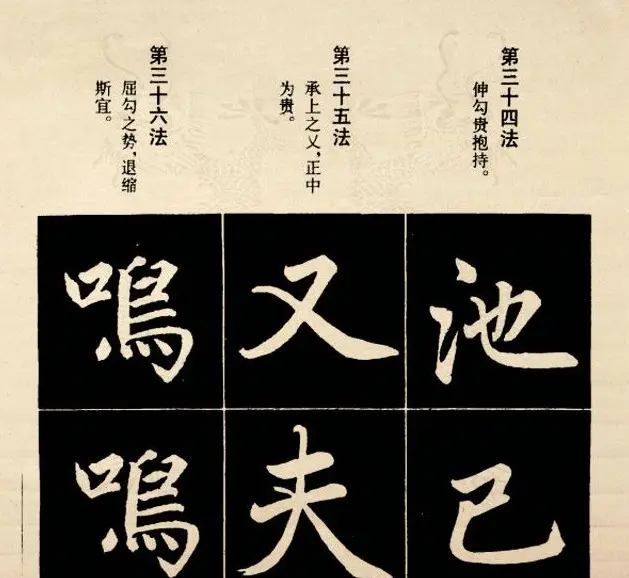 第三十四法
伸勾贵抱持。
第三十五法
承上之乂,正中
为贵。
第三十六法
屈勾之势,退缩
斯宜。
池
已
又
夫
鳴
鳴